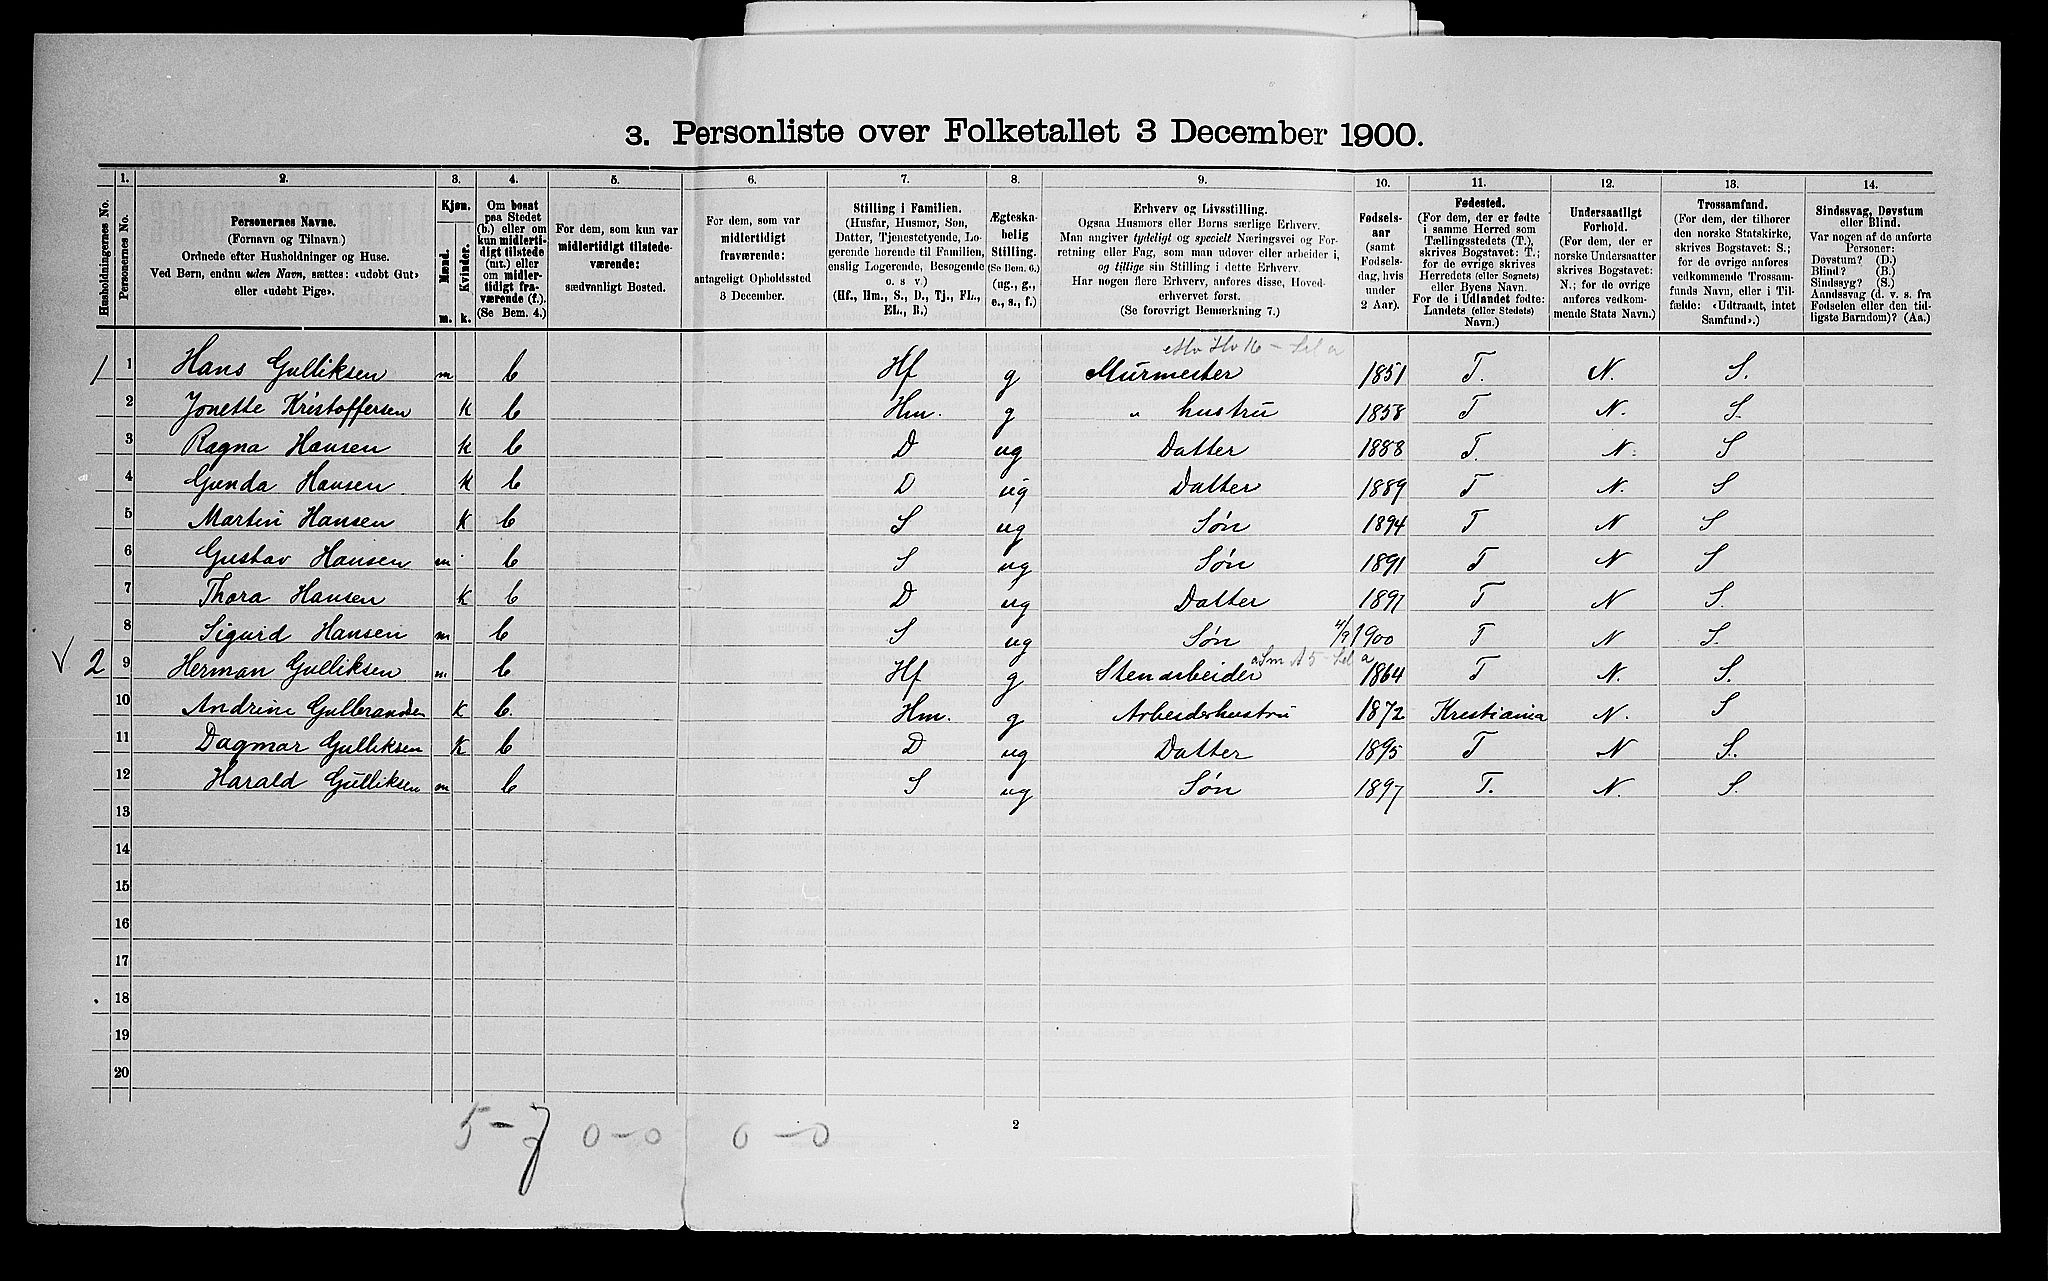 3. Personliste over Folketallet 3 December 1900.
Husholdningernes No.
1.
Personernes No.
2.
Personernes Navne.
(Fornavn og Tilnavn.)
Ordnede efter Husholdninger og Huse.
Ved Børn, endnu uden Navn, sættes: «udøbt Gut»
eller «udøbt Pige».
3.
Kjøn.
Mænd.
Kvinder.
m. k.
4.
Om bosat
paa Stedet
(b.) eller om
kun midlerti-
digt tilstede
(mt.) eller
om midler-
tidigt fra-
værende (f.).
(Se Bem. 4.)
5.
For dem, som kun var
midlertidigt tilstede-
værende:
sædvanligt Bosted.
6.
For dem, som var
midlertidigt
fraværende:
antageligt Opholdssted
3 December.
7.
Stilling i Familien.
(Husfar, Husmor, Søn,
Datter, Tjenestetyende, Lo-
gerende hørende til Familien,
enslig Logerende, Besøgende
o. s v.)
(Hf., Hm., S., D., Tj., FL.,
EL., B.)
8.
Ægteska-
belig
Stilling.
(Se Bem. 6.)
(ug., g.,
e., s., f.)
9.
Erhverv og Livsstilling.
Ogsaa Husmors eller Børns særlige Erhverv.
Man angiver tydeligt og specielt Næringsvei og For-
retning eller Fag, som man udøver eller arbeider i,
og tillige sin Stilling i dette Erhverv.
Har nogen flere Erhverv, anføres disse, Hoved-
erhvervet først.
(Se forøvrigt Bemærkning 7.)
10.
Fødsels-
aar
(samt
Fødsels-
dag, hvis
under
2 Aar).
11.
Fødested.
(For dem, der er fødte
i samme Herred som
Tællingsstedets (T.),
skrives Bogstavet: T.;
for de øvrige skrives
Herredets (eller Sognets)
eller Byens Navn.
For de i Udlandet fødte:
Landets (eller Stedets)
Navn.)
12.
Undersaatligt
Forhold.
(For dem, der er
norske Undersaatter
skrives Bogstavet:
N.; for de øvrige
anføres vedkom-
mende Stats Navn.)
13.
Trossamfund.
(For dem, der tilhører
den norske Statskirke,
skrives Bogstavet: S.;
for de øvrige anføres
vedkommende Trossam-
funds Navn, eller i Til-
fælde: «Udtraadt, intet
Samfund».)
14.
Sindssvag, Døvstum
eller Blind.
Var nogen af de anførte
Personer:
Døvstum? (D.)
Blind? (B.)
Sindssyg? (S.)
Aandssvag (d. v. s. fra
Fødselen eller den tid-
ligste Barndom)? (Aa.)
1 1 Hans Gulliksen m b Hf g Murmester 1851 T. N. S.
2 Jonette Kristoffersen k b Hm. g " hustru 1858 T N. S.
3 Ragna Hansen k b D ug Datter 1888 T. N. S
4 Gunda Hansen k b D ug Datter 1889 T N. S
5 Martin Hansen k b S ug Søn 1894 T N S
6 Gustav Hansen m b S ug Søn 1891 T N S
7 Thora Hansen k b D ug Datter 1897 T N S.
8 Sigurd Hansen m b S ug Søn 4/9 1900 T N S.
V 2 9 Herman Gulliksen m b Hf g Stenarbeider 1864 T N. S.
10 Andrine Gulbrandsen k b. Hm. g Arbeiderhustru 1872 Krestiania N. S
11 Dagmar Gulliksen k b D ug Datter 1895 T N S.
12 Harald Gulliksen m b S ug Søn 1897 T. N. S.
13
14
15
16
17
18
19
20
5-7 0-0 0-0
2